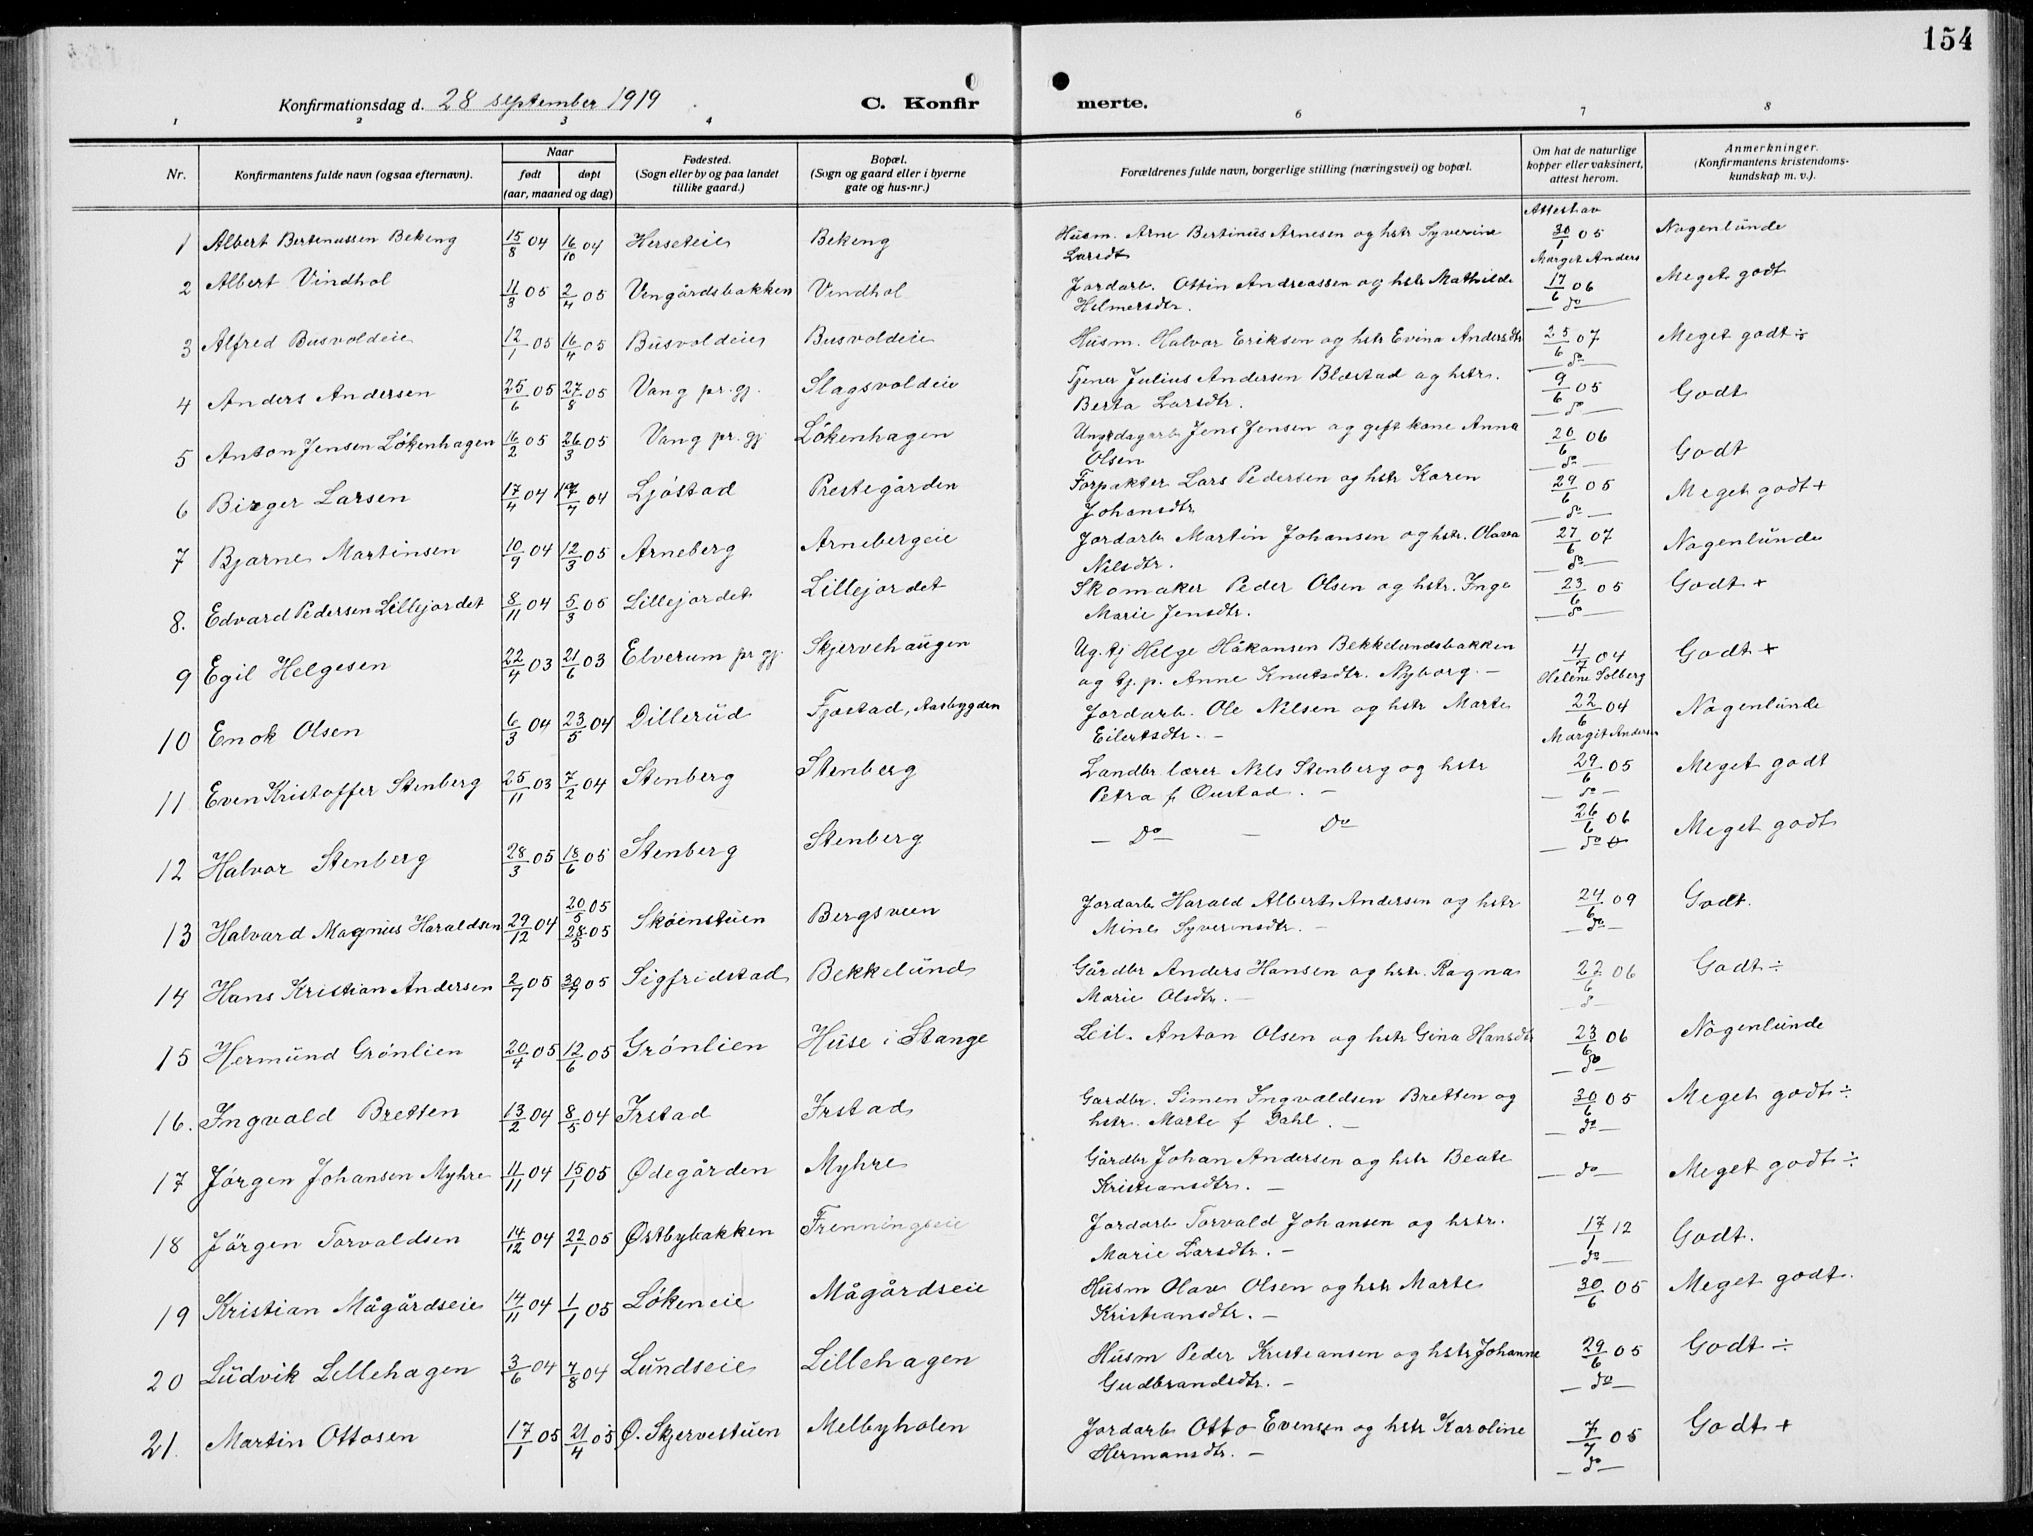 154
Konfirmationsdag d. 28 september 1919
C. Konfir merte.
1 2 3 4 6 7 8
Nr. Konfirmantens fulde navn (ogsaa efternavn). Naar født døpt (aar, maaned og dag) Fødested. (Sogn eller by og paa landet tillike gaard.) Bopæl. (Sogn og gaard eller i byerne gate og hus-nr.) Forældrenes fulde navn, borgerlige stilling (næringsvei) og bopæl. Om hat de naturlige kopper eller vaksinert, attest herom. Anmerkninger. (Konfirmantens kristendoms-kundskap m. v.).
Attest av
1 Albert Bertinussen Bekeng 15/8 04 16/10 04 Herseteie Bekeng Husm. Arne Bertinus Arnesen og hstr Syverine 30/1 05 Nogenlunde
Larsdt Marget Anders
2 Albert Vindhol 11/3 05 2/4 05 Vengårdsbakken Vindhol Jordarb. Ottin Andreassen og hstr Mathilde 17/6 06 Meget godt
Helmersdtr. — do —
3 Alfred Busvoldeie 12/1 05 16/4 05 Busvoldeie Busvoldeie Husm. Halvor Eriksen og hstr Evina Andersdtr 25/6 07 Meget godt ÷
— do —
4 Anders Andersen 25/6 05 27/8 05 Vang pr. gj. Slagsvoldeie Tjener Julius Andersen Blæstad og hstr. 9/6 05 Godt
Berta Larsdtr. — do —
5 Anton Jensen Løkenhagen 16/2 05 26/3 05 Vang pr. gj Løkenhagen Ung. dagarb Jens Jensen og gift kone Anna 20/6 06 Godt
Olsen — do —
6 Birger Larsen 17/4 04 17/7 04 Ljøstad Prestegården Forpakter Lars Pedersen og hstr Karen 29/6 05 Meget godt +
Johansdtr — do —
7 Bjarne Martinsen 10/9 04 12/3 05 Arneberg Arnebergeie Jordarb Martin Johansen og hstr. Olava 27/6 07 Nogenlunde
Nilsdtr. — do —
8. Edvard Pedersen Lillejordet 8/11 04 5/3 05 Lillejordet Lillejordet Skomaker Peder Olsen og hstr. Inga 23/6 05 Godt +
Marie Jensdtr. — do —
9 Egil Helgesen 22/4 03 21/6 03 Elverum pr gj. Skjervehaugen Ug. tj Helge Håkonsen Bekkelundsbakken 4/7 04 Godt +
og tj. p. Anne Knutsdtr. Nyborg. — Helene Solberg
10 Enok Olsen 6/3 04 23/5 04 Dillerud Fjæstad, Aasbygden Jordarb. Ole Nilsen og hstr Marte 22/6 04 Nogenlunde
Eilertsdtr. — Margit Andersen
11 Even Kristoffer Stenberg 25/11 03 7/2 04 Stenberg Stenberg Landbr lærer Nils Stenberg og hstr 29/6 05 Meget godt
Petra f Øustad. — — do —
12 Halvor Stenberg 28/3 05 18/6 05 Stenberg Stenberg — do — — do 26/6 06 Meget godt
— do —
13 Halvard Magnus Haraldsen 29/12 04 20/5 05 28/5 05 Skøienstuen Bergsveen Jordarb Harald Albert Andersen og hstr 24/6 09 Godt.
Mine Syverensdtr. — — do —
14 Hans Kristian Andersen 2/7 05 30/7 05 Sigfridstad Bekkelund Gårdbr Anders Hansen og hstr. Ragna 22/6 06 Godt ÷
Marie Olsdtr. — do
15 Hermund Grønlien 20/4 05 12/6 05 Grønlien Huse i Stange Leil. Anton Olsen og hstr Gina Hansdtr 23/6 06 Nogenlunde
— do —
16. Ingvald Bretten 13/2 04 8/5 04 Irstad Irstad Gardbr. Simen Ingvaldsen Bretten og 30/6 05 Meget godt ÷
hstr. Marte f Dahl. — — do —
17 Jørgen Johansen Myhre 11/11 04 15/1 05 Ødegården Myhre Gårdbr Johan Andersen og hstr Beate — do — Meget godt ÷
Kristiansdtr. —
18 Jörgen Torvaldsen 14/12 04 22/1 05 Østbybakken Frenningseie Jordarb Torvald Johansen og hstr. 17/1 12 Godt.
Marie Larsdtr. — — do —
19 Kristian Mågårdseie 14/11 04 1/1 05 Løkeneie Mågårdseie Husm Olav Olsen og hstr Marte 30/6 05 Meget godt.
Kristiansdtr. —
20 Ludvik Lillehagen 3/6 04 7/8 04 Lundseie Lillehagen Husm Peder Kristiansen og hstr Johanne 29/6 05 Godt ÷
Gudbrandsdtr. — — do —
21. Martin Ottosen 17/1 05 21/4 05 Ø. Skjervestuen Melbyholen Jordarb Otto Evensen og hstr Karoline 7/7 05 Godt +
Hermansdtr. — — do —